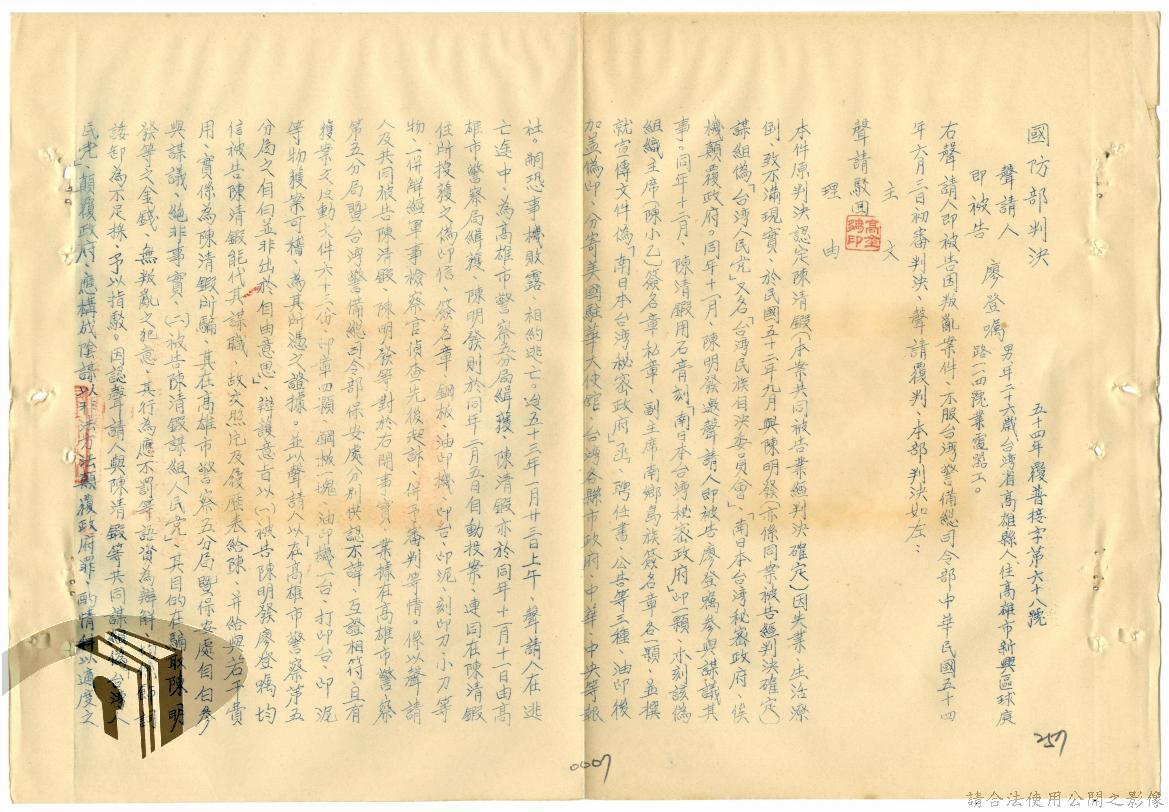 國防部判決
五十四年覆普接字第六十八號
聲請人
即被告
廖登囑 男年二十六歲台灣省高雄縣人住高雄市新興區球庚
路一四號業電器工。
右聲請人即被告因叛亂案件、不服台灣警備總司令部中華民國五十四
年六月三日初審判決、聲請覆判、本部判決如左:
主文
聲請駁回
理由
本件原判決認定陳清鍛(本案共同被告業經判決確定)因失業、生活潦
倒、致不滿現實、於民國五十二年九月與陳明發(亦係同案被告經判決確定)
謀組偽「台湾人民党」又名「台湾民族自決委員會」、「南日本台湾秘密政府」、俟
機顛覆政府。同年十一月、陳明發邀聲請人即被告廖登囑參與謀議其
事。同年十二月、陳清鍛用石膏刻「南日本台湾秘密政府」印一顆、木刻該偽
組織主席(陳小乙)簽名章私章、副主席南鄉島族簽名章各一顆、並撰
就宣傳文件偽「南日本台湾秘密政府」函、聘任書、公告等三種、油印後
加盖偽印、分寄美國駐華大使館、台灣各縣市政府、中華、中央等報
社。嗣恐事機敗露、相約逃亡。迨五十三年一月廿三日上午、聲請人在逃
亡途中、為高雄市警察五分局緝獲、陳清鍛亦於同年十一月十一日由高
雄市警察局緝獲、陳明發則於同年二月五日自動投案、連同在陳清鍛
住所搜獲之偽印信、簽名章、鋼板、油印機、印台、印泥、刻印刀、小刀等
物、併解經軍事檢察官偵查先後起訴、併予審判等情。係以聲請
人及共同被告陳清鍛、陳明發等對於右開事實、業據在高雄市警察
第五分局暨台灣警備總司令部保安處分別供認不諱、互證相符且有
獲案之反動文件六十三份、印章四顆、鋼板一塊、油印機一台、打印台、印泥
等物獲案可稽、為其所憑之證據。並以聲請人以「在高雄市警察第五
分局之自白並非出於自由意思」、辯護意旨以「(一)被告陳明發廖登囑均
信被告陳清鍛能代其謀職、故交照片及履歷表給陳、并給與若干費
用、實係為陳清鍛所騙、其在高雄市警察五分局暨保安處自白參
與謀議、絕非事實、(二)被告陳清鍛謀組「人民党」、其目的在騙取陳明
發等之金錢、無叛亂之犯意、其行為應不罰等語資為辯解、均係飾詞
諉卸為不足採、予以指駁。因認聲請人與陳清鍛等共同謀組偽「台湾人
民党」顛覆政府、應構成陰謀以非法方法顛覆政府罪、酌情科以適度之
257
0007
請合法使用公開之影像